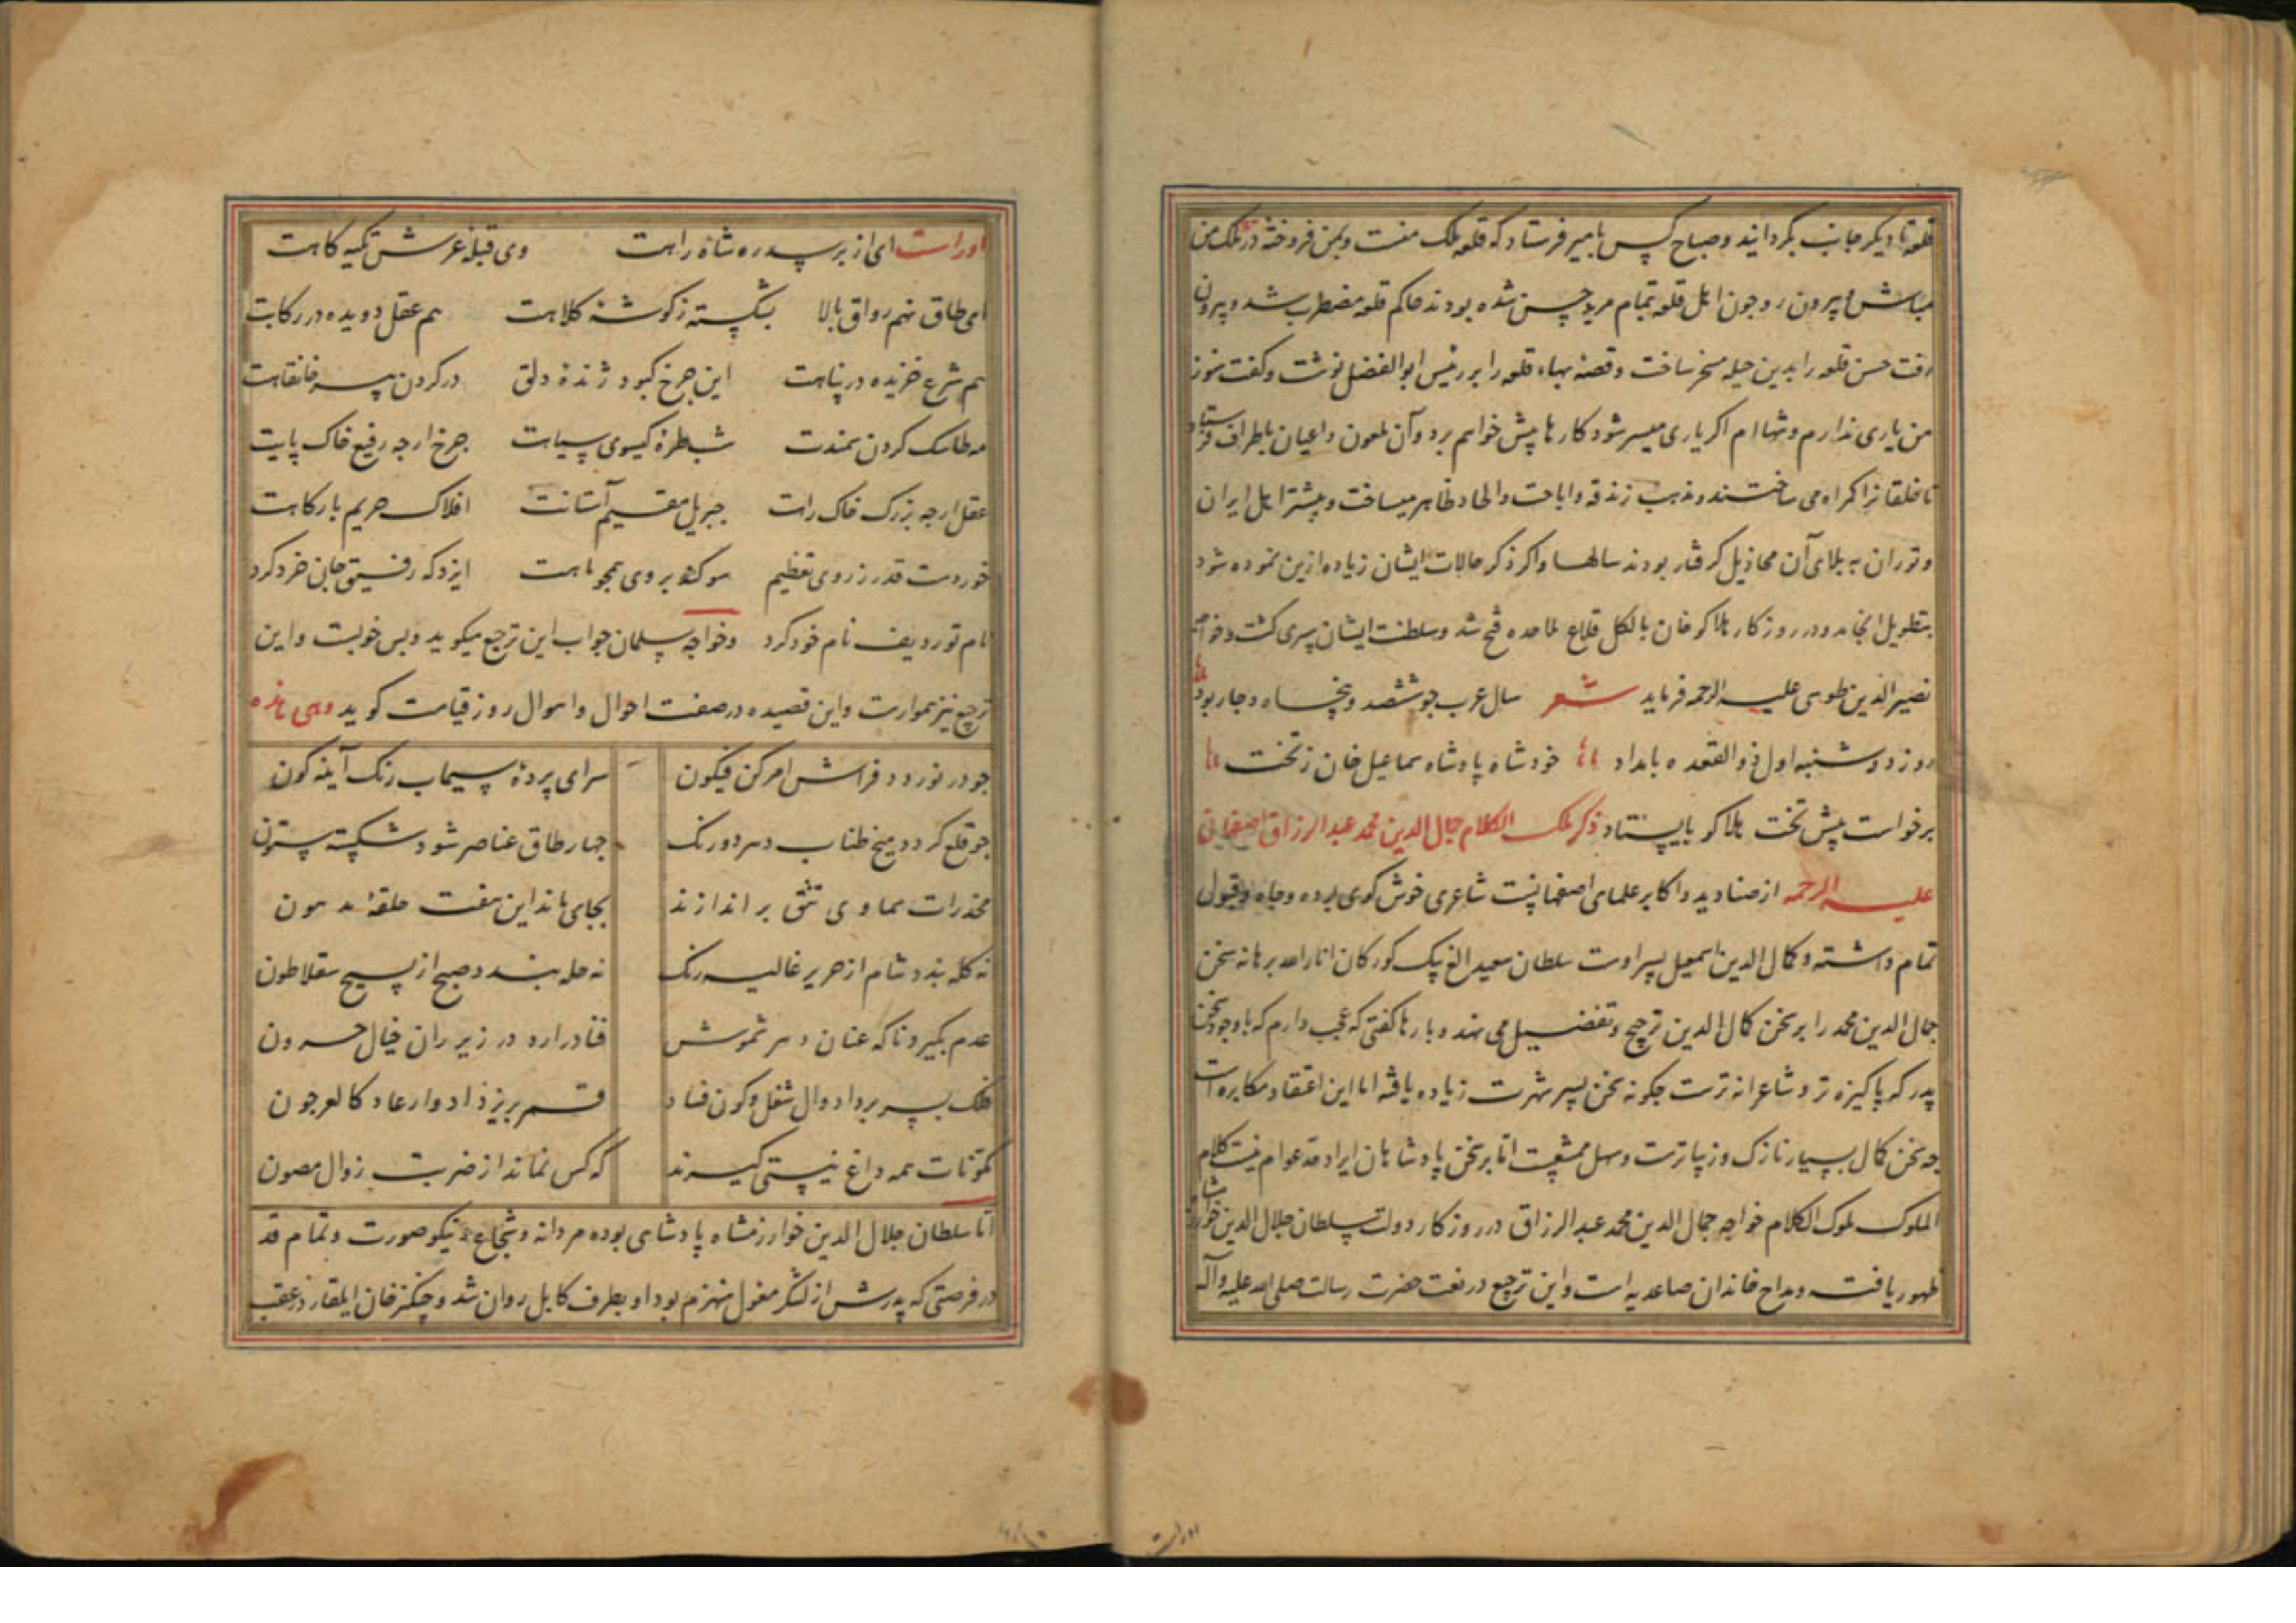 قلعه تا دیکر جانب بکردانید و صباح کس بامیر فرستاد که قلعه ملک منست و بمن فروخته در ملک من
مباش و بیرون رو جون اهل قلعه تمام مرید حسن شده بودند حاکم قلعه مضطرب شد و بیرون
رفت حسن قلعه را بدین حیله مسخر ساخت و قصه بهاء قلعه را بر رئیس ابوالفضل نوشت و کفت هنوز
من یاری ندارم و تنها ام اکر یاری میسر شود کارها پیش خواهم برد و آن ملعون داعیان باطراف فرستاد
تا خلقانرا کمراه می ساختند و مذهب زندقه و اباحت و الحاد ظاهر میساخت و بیشتر اهل ایران
و توران به بلای آن مخاذیل کرفتار بودند سالها و اکر ذکر حالات ایشان زیاده ازین نموده شود
بتطویل انجامد و در روزکار هلاکو خان بالکل قلاع ملاحده فتح شد و سلطنت ایشان سپری کشت و خواجه
نصیر الدین طوسی علیه الرحمه فرماید شعر سال عرب جو ششصد و پنجاه و جار بود
روز دوشنبه اول ذو القعده بامداد خورشاه پادشاه سماعیل خان ز تخت
برخواست پیش تخت هلاکو بایستاد ذکر ملک الکلام جمال الدین محمد عبد الرزاق اصفهانی
علیه الرحمه از صنادید و اکابر علمای اصفهانست شاعری خوش کوی بوده و جاه و قبول
تمام داشته و کمال الدین اسمعیل پسر اوست سلطان سعید الغ بیک کورکان انار الله برهانه سخن
جمال الدین محمد را بر سخن کمال الدین ترجیح و تفضیل می نهد و بارها کفتی که عجب دارم که باوجود سخن
پدر که پاکیزه تر و شاعرانه ترست جکونه سخن پسر شهرت زیاده یافته اما این اعتقاد مکابره است
جه سخن کمال بسیار نازک و زیباترست و سهل ممتنعست اما بر سخن پادشاهان ایراد حد عوام نیست کلام
الملوک ملوک الکلام خواجه جمال الدین محمد عبد الرزاق در روزکار دولت سلطان جلال الدین خوارزمشاه
ظهور یافت و مداح خاندان صاعدیه است و این ترجیع در نعت حضرت رسالت صلی الله علیه و آله
اوراست ای از بر سدره شاه راهت وی قبله عرش تکیه کاهت
ای طاق نهم رواق بالا بشکسته ز کوشه کلاهت هم عقل دویده در رکابت
هم شرع خزیده در پناهت این جرخ کبود ژنده دلق در کردن پیر خانقاهت
مه طاسک کردن سمندت شب طره کیسوی سیاهت جرخ ارجه رفیع خاک پایت
عقل ارجه بزرک خاک راهت جبریل مقیم آستانت افلاک حریم بارکاهت
خوردست قدر ز روی تعظیم سوکند بروی همجو ماهت ایزد که رفیق جان خرد کرد
نام تو ردیف نام خود کرد و خواجه سلمان جواب این ترجیع میکوید و بس خوبست و این
ترجیع نیز هموارست و این قصیده در صفت احوال و اهوال روز قیامت کوید و هی هذه
جو در نوردد فراش امر کن فیکون سرای پرده سیماب رنک آینه کون
جو قلع کردد میخ طناب دهر دورنک جهار طاق عناصر شود شکسته ستون
مخدرات سماوی تتق براندازند بجای ماند این هفت حلقه مدهون
نه کله بندد شام از حریر غالیه رنک نه حله بندد صبح از نسیج سقلاطون
عدم بکیرد ناکه عنان دهر شموس فنا درآرد در زیر ران خیال حرون
فلک بسر برد ادوار شغل کون فساد قمر بریزد ادوار عاد کالعرجون
مکونات همه داغ نیستی کیرند که کس نماند از ضربت زوال مصون
اما سلطان جلال الدین خوارزمشاه پادشاهی بوده مردانه و شجاع نیکو صورت و تمام قد
در فرصتی که پدرش از لشکر مغول منهزم بود او بطرف کابل روان شد و چنکز خان ایلغار در عقب
اوراست